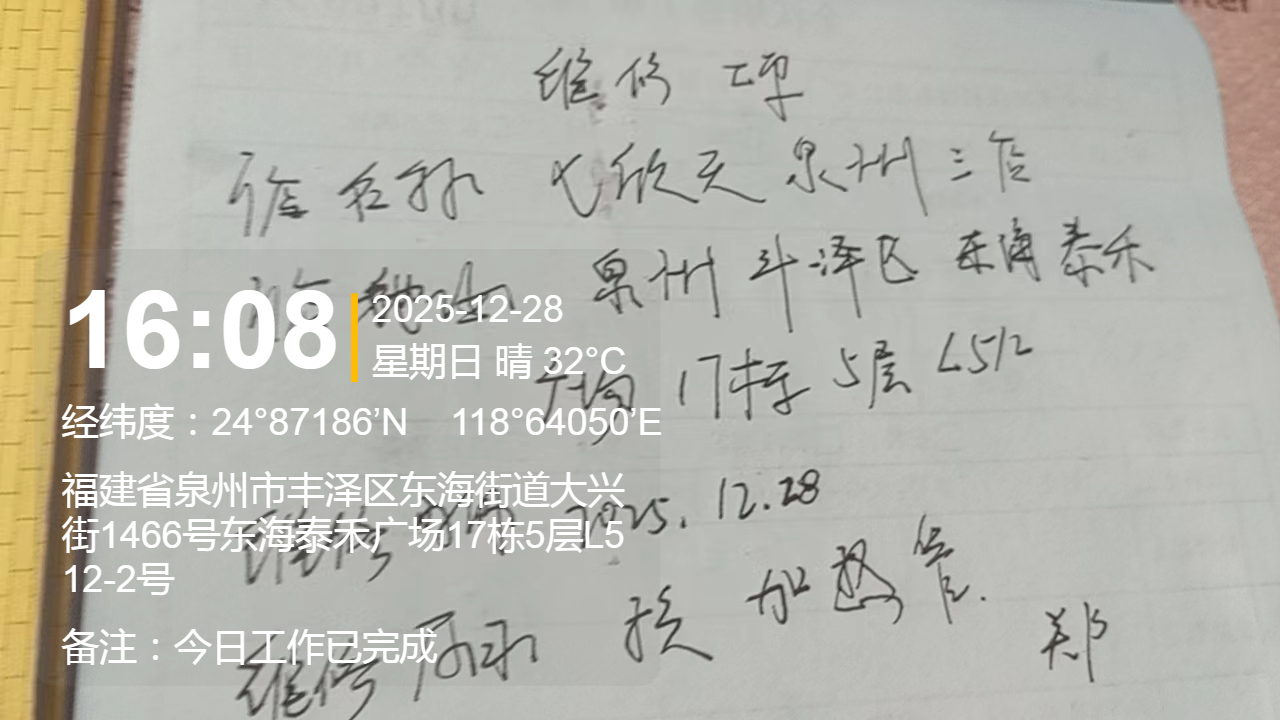 维修单
店名称 七欣天泉州三店
店地址 泉州丰泽区东海泰禾
广场17栋5层L512
维修时间 2025.12.28
维修内容 换加热管.
郑
16:08
2025-12-28
星期日 晴 32°C
经纬度：24°87186’N 118°64050’E
福建省泉州市丰泽区东海街道大兴
街1466号东海泰禾广场17栋5层L5
12-2号
备注：今日工作已完成